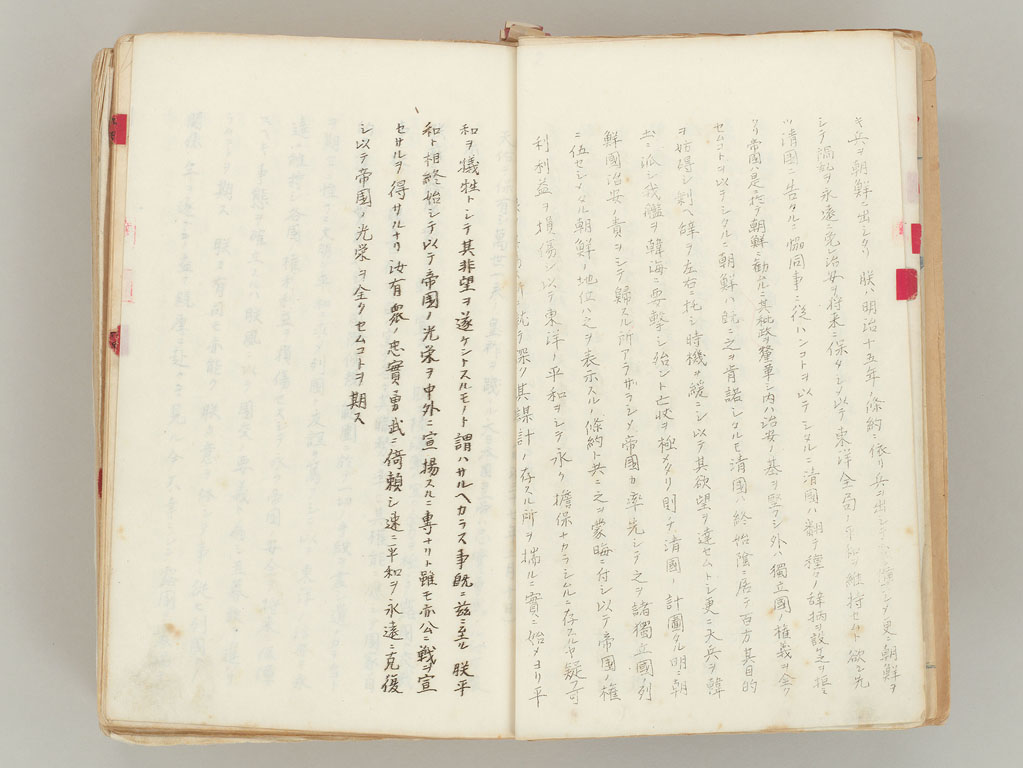 キ兵ヲ朝鮮ニ出シタリ 朕ハ明治十五年ノ條約ニ依リ兵ヲ出シテ變ニ備ヘシメ更ニ朝鮮ヲ
シテ禍亂ヲ永遠ニ免レ治安ヲ將來ニ保タシメ以テ東洋全局ノ平和ヲ維持セムト欲シ先
ツ清國ニ告クルニ協同事ニ從ハンコトヲ以テシタルニ清國ハ翻テ種々ノ辭柄ヲ設ケ之ヲ拒ミ
タリ帝國ハ是ニ於テ朝鮮ニ勸ムルニ其秕政ヲ釐革シ内ハ治安ノ基ヲ堅クシ外ハ獨立國ノ權義ヲ全ク
セムコトヲ以テシタルニ朝鮮ハ既ニ之ヲ肯諾シタルモ清國ハ終始陰ニ居テ百方其目的
ヲ妨碍シ剰ヘ辭ヲ左右ニ托シ時機ヲ緩ニシ以テ其欲望ヲ達セムトシ更ニ大兵ヲ韓
土ニ派シ我艦ヲ韓海ニ要撃シ殆ント亡状ヲ極メタリ則チ清國ノ計圖タル明ニ朝
鮮國治安ノ責ヲシテ歸スル所アラザラシメ帝國カ率先シテ之ヲ諸獨立國ノ列
ニ伍セシメタル朝鮮ノ地位ハ之ヲ表示スルノ條約ト共ニ之ヲ蒙晦ニ付シ以テ帝國ノ權
利利益ヲ損傷シ以テ東洋ノ平和ヲシテ永ク擔保ナカラシムルニ存スルヤ疑フ可
就テ深ク其謀計ノ存スル所ヲ揣ルニ實ニ始メヨリ平
和ヲ犠牲トシテ其非望ヲ遂ケントスルモノト謂ハサルヘカラス事既ニ茲ニ至ル 朕平
和ト相終始シテ以テ帝國ノ光栄ヲ中外ニ宣揚スルニ專ナリト雖モ亦公ニ戰ヲ宣
セサルヲ得サルナリ汝有衆ノ忠實勇武ニ倚頼シ速ニ平和ヲ永遠ニ克復
シ以テ帝國ノ光栄ヲ全クセムコトヲ期ス